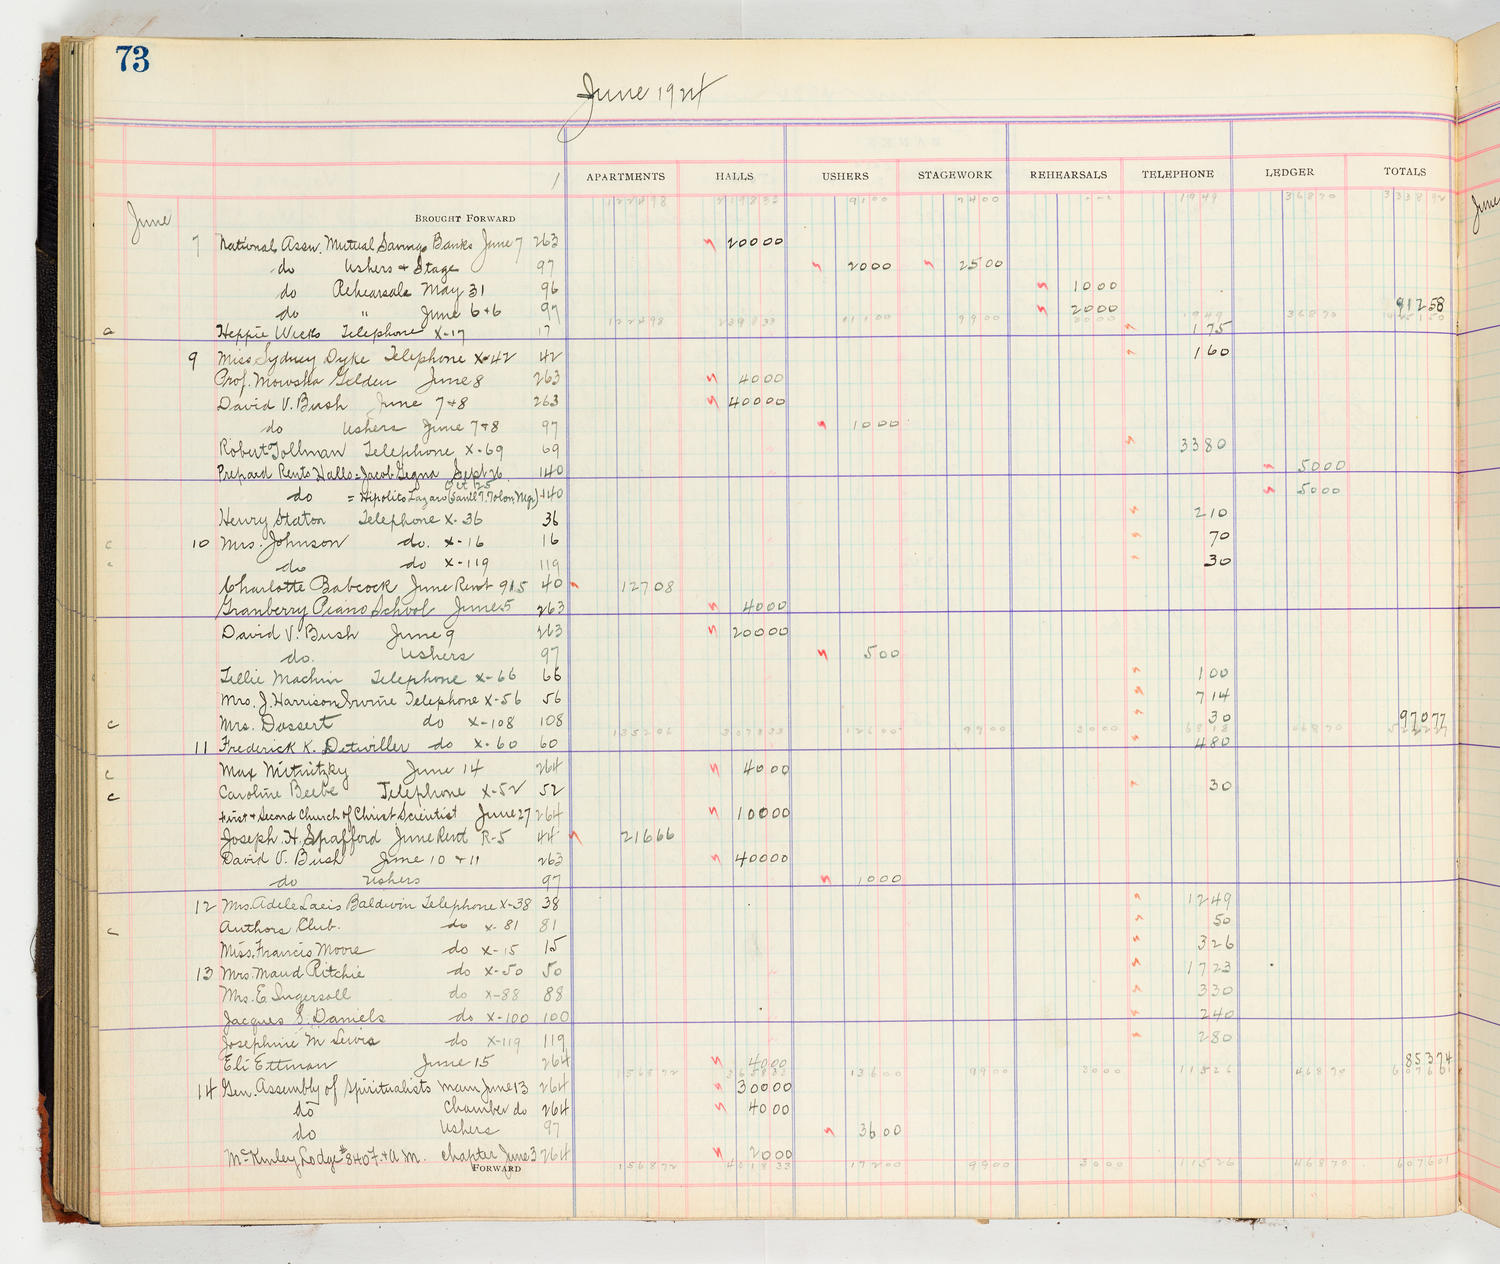 73
June 1924
APARTMENTS HALLS USHERS STAGEWORK REHEARSALS TELEPHONE LEDGER TOTALS
June BROUGHT FORWARD 1949 36870
7 National Assn. Mutual Savings Banks June 7 263 20000
do Ushers & Stage 97 2000 2500
do Rehearsals May 31 96 1000
do " June 6+6 97 2000 91258
a Heppie Wicks Telephone X-17 17 175
9 Miss Sydney Dyke Telephone X-42 42 160
Prof. Mowsha Gelden June 8 263 4000
David V. Bush June 7+8 263 40000
do Ushers June 7+8 97 1000
Robert Tollman Telephone X-69 69 3380
Prepaid Rents Halls = Jacob Gegna Sept 26 140 5000
do = Hipolito Lazaro Oct 25 140 5000
Henry Staton Telephone X-36 36 210
c 10 Mrs. Johnson do. X-16 16 70
c do do X-119 119 30
Charlotte Babcock June Rent 915 40 12708
Granberry Piano School June 5 263 4000
David V. Bush June 9 263 20000
do. Ushers 97 500
Tillie Machin Telephone X-66 66 100
Mrs. J. Harrison Irvine Telephone X-56 56 714
c Mrs. Dossert do X-108 108 30 97077
11 Frederick K. Detwiller do X-60 60 480
c Max June 14 264 4000
c Caroline Beebe Telephone X-52 52 30
First & Second Church of Christ Scientist June 27 264 10000
Joseph H. Spafford June Rent R-5 44 21666
David V. Bush June 10 + 11 263 40000
do Ushers 97 1000
12 Mrs. Adele Laeis Baldwin Telephone X-38 38 1249
c Authors Club. do X-81 81 50
Miss. Francis Moore do X-15 15 326
13 Mrs. Maud Ritchie do X-50 50 1723
Mrs. E Ingersoll do X-88 88 330
Jacques S. Daniels do X-100 100 240
Josephine M Lewis do X-119 119 280
Eli Ettman June 15 264 4000 85374
14 Gen. Assembly of Spiritualists Main June 13 264 30000
do Chamber do 264 4000
do Ushers 97 3600
McKinley Lodge #840 F. + A M. Chapter June 3 264 2000
FORWARD 156872 461833 17200 9900 3000 11526 46870 607601
June